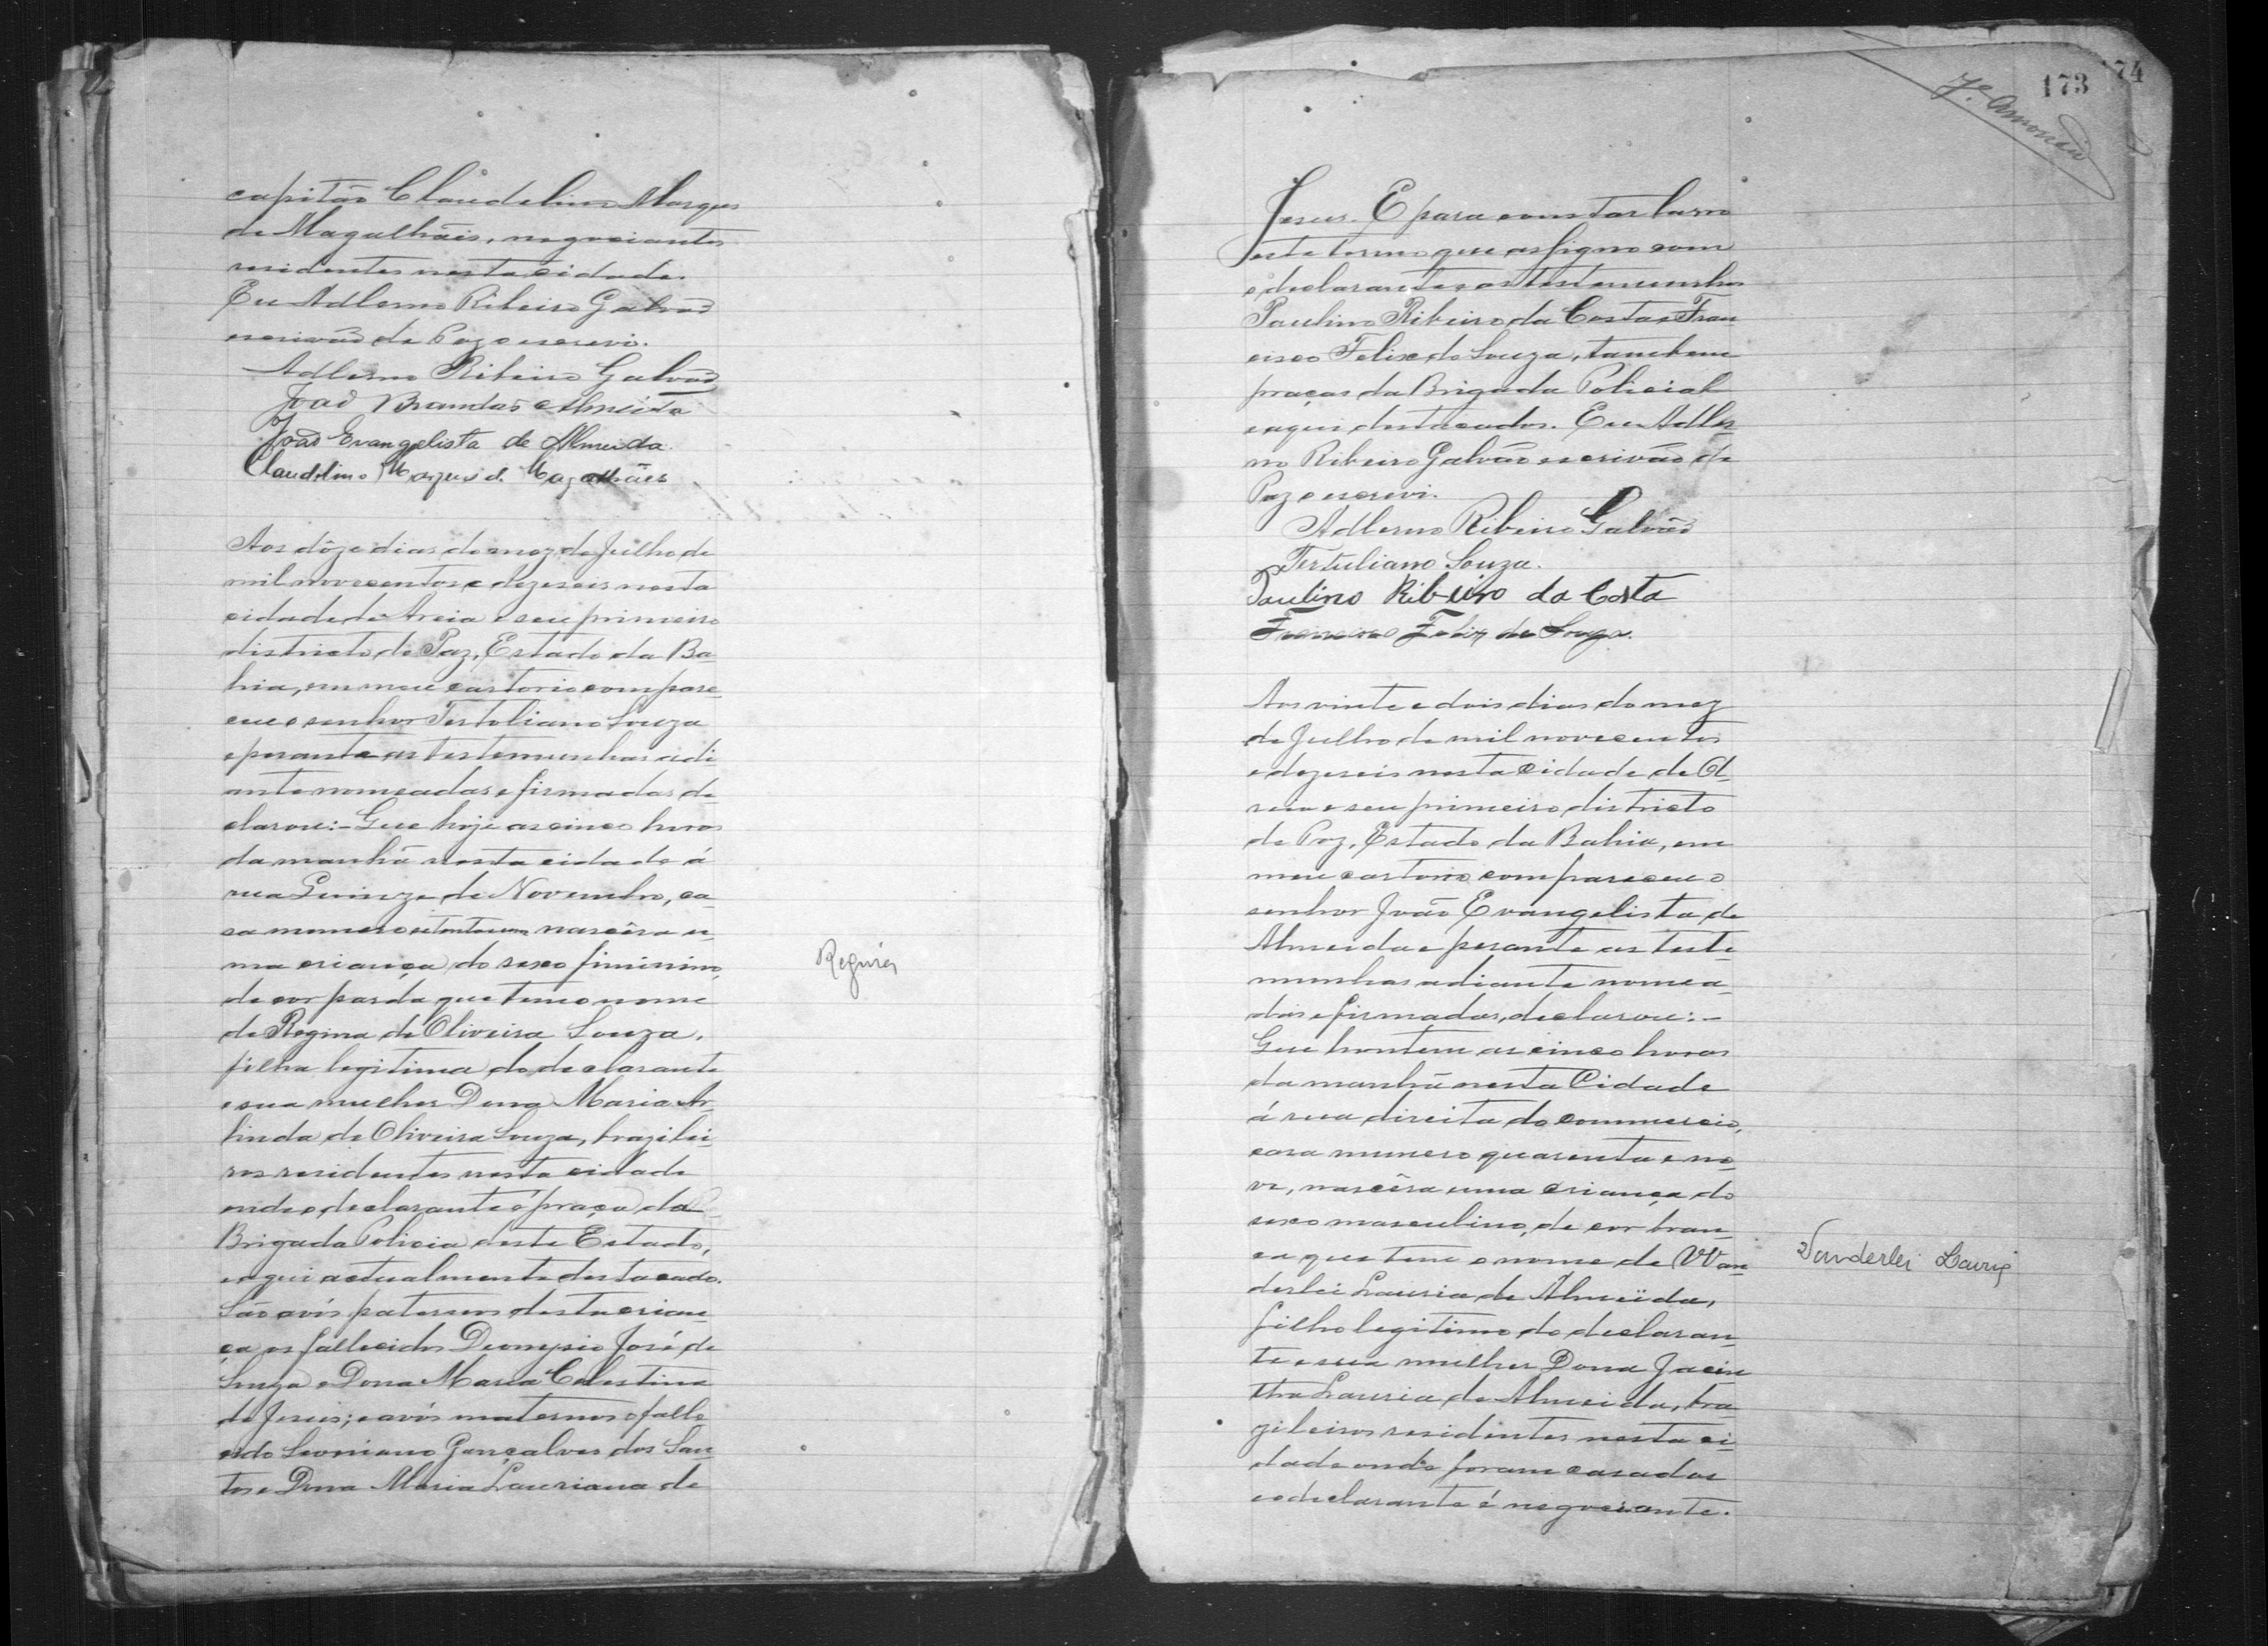 capitão Claudelino Marques
de Magalhães, negociantes
residentes nesta cidade.
Eu Adlerno Ribeiro Galvão
escrivão de Paz o escrevi.
Adlerno Ribeiro Galvão
João Brandão Almeida
João Evangelista de Almeida.
Claudelino Marques de Magalhães
Aos dôze dias do mez de Julho de
mil novecentos e dezeseis nesta
cidade de Areia e seu primeiro
districto de Paz, Estado da Ba-
hia, em meu cartorio compare-
ceu o senhor Tertoliano Souza
e perante as testemunhas adi
ante nomeadas e firmadas de-
clarou:- Que hoje as cinco horas
da manhã nesta cidade á
rua Quinze de Novembro, ca-
sa numero setenta e um nascêra u-
ma criança do sexo fiminino,
de cor parda que tem o nome
de Regina de Oliveira Souza,
filha legitima do declarante
e sua mulher Dona Maria Ar-
linda de Oliveira Souza, brazilei-
ros residentes nesta cidade
onde o declarante é praça da
Brigada Policia deste Estado,
e aqui actualmente destacado.
São avós paternos desta crian-
ça os fallecidos Dionysio José de
Souza e Dona Maria Celestina
de Jesus; e avós maternos o falle-
cido Leoniano Gonçalves dos San-
tos e Dona Maria Lauriana de
Regina
173
74
Jesus. E para constar lavro
este termo que assigno com
o declarante e as testemunhas
Paulino Ribeiro da Costa e Fran
cisco Felix de Souza, tambem
praças da Brigada Policial
e aqui destacados. Eu Adler-
no Ribeiro Galvão escrivão de
Paz o escrevi.
Adlerno Ribeiro Galvão
Tertuliano Souza.
Paulino Ribeiro da Costa
Francisco Felix de Souza.
Aos vinte e dois dias do mez
de Julho de mil novecentos
e dezeseis nesta cidade de A-
reia e seu primeiro districto
de Paz, Estado da Bahia, em
meu cartorio compareceu o
senhor João Evangelista de
Almeida e perante as teste-
munhas adiante nomea-
das e firmadas, declarou:-
Que hontem as cinco horas
da manhã nesta Cidade
á rua direita do commercio,
casa numero quarenta e no-
ve, nascêra uma criança do
sexo masculino, de cor bran-
ca que tem o nome de Wan-
derlei Lauria de Almeida,
filho legitimo do declaran-
te e sua mulher Dona Jacin
tha Lauria de Almeida, bra-
zileiros residentes nesta ci-
dade onde foram casados
e o declarante é negociante.
Vanderlei Lauria